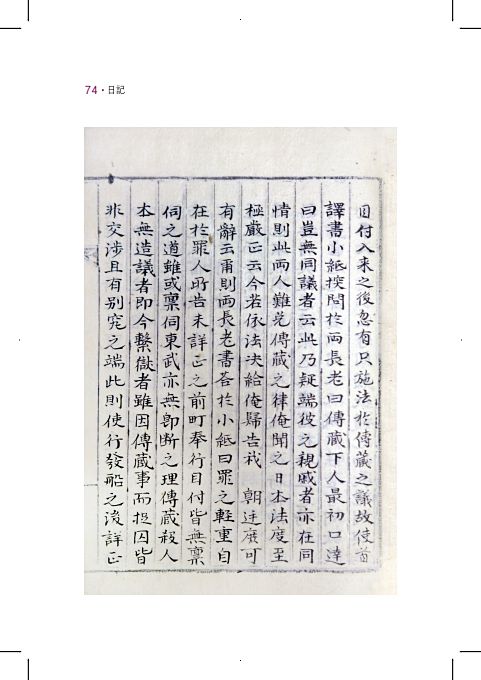 74・日記
目付入来之後忽有只施法於傳藏之議故使首
譯書小紙探問於両長老曰傳藏下人最初口達
曰豈無同議者云此乃疑端彼之親戚者亦在同
情則此両人難免傳藏之律俺聞之日本法度至
極嚴正云今若依法决給俺歸告我 朝廷庶可
有辭云爾則両長老書荅於小紙曰罪之軽重自
在於罪人所告未詳正之前町奉行目付皆無禀
伺之道雖或禀伺東武亦無卽斷之理傳藏殺人
本無造議者即今繫獄者雖因傳藏事而捉囚皆
非交涉且有别究之端此則使行發船之後詳正